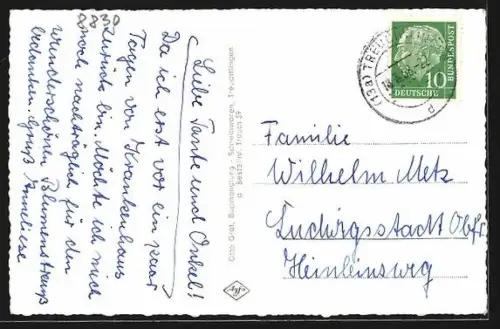 8830
Liebe Tante und Onkel!
Da ich erst vor ein paar
Tagen von Krankenhaus
zurück bin. Möchte ich mich
noch nachträglich für den
wunderschönen Blumenstrauß
bedanken. Gruß Anneliese
Otto Graf, Buchhandlung - Schreibwaren, Treuchtlingen
Agfa
(13a) TREUCHTLINGEN
DEUTSCHE
BUNDESPOST
10
Familie
Wilhelm Metz
Ludwigsstadt Obfr.
Heinleinsweg